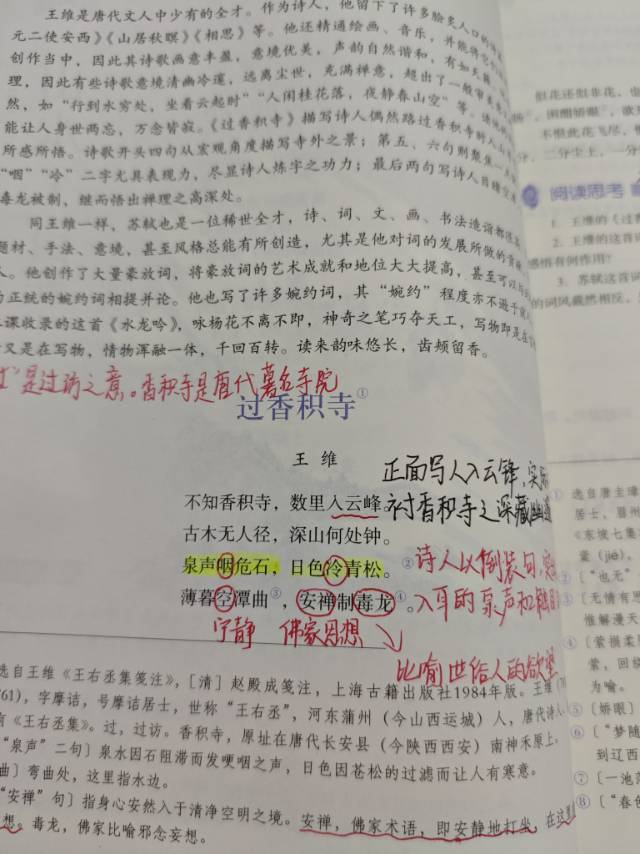 王维是唐代文人中少有的全才。作为诗人，他留下了许多脍炙人口的诗
元二使安西》《山居秋暝》《相思》等。他还精通绘画、音乐，并能将它
创作当中，因此其诗歌画意丰盈，意境优美，声韵自然谐和，有如天籁
理，因此有些诗歌意境清幽冷邃，远离尘世，充满禅意，超出了一般
然，如“行到水穷处，坐看云起时”“人闲桂花落，夜静春山空”等
能让人身世两忘，万念皆寂。《过香积寺》描写诗人偶然路过香积寺时入山
所感所悟。诗歌开头四句从宏观角度描写寺外之景；第五、六句则聚焦
“咽”“冷”二字尤具表现力，尽显诗人炼字之功力；最后两句写诗人目睹空
毒龙被制，继而悟出禅理之高深处。
同王维一样，苏轼也是一位稀世全才，诗、词、文、画、书法造诣都
题材、手法、意境，甚至风格总能有所创造，尤其是他对词的发展所做的贡献
人。他创作了大量豪放词，将豪放词的艺术成就和地位大大提高，甚至可以
为正统的婉约词相提并论。他也写了许多婉约词，其“婉约”程度亦不逊于
课收录的这首《水龙吟》，咏杨花不离不即，神奇之笔巧夺天工，写物即是在
又是在写物，情物浑融一体，千回百转。读来韵味悠长，齿颊留香。
是过访之意。香积寺是唐代著名寺院
过香积寺①
王 维
不知香积寺，数里入云峰。
古木无人径，深山何处钟。
泉声咽危石，日色冷青松。②
薄暮空潭曲③，安禅制毒龙④。
正面写人入云锋，实际
衬香积寺之深藏幽
诗人以倒装句，
入耳的泉声和
宁静 佛家思想
比喻世俗人的欲望
选自王维《王右丞集笺注》，[清]赵殿成笺注，上海古籍出版社1984年版。王维
761)，字摩诘，号摩诘居士，世称“王右丞”，河东蒲州（今山西运城）人，唐代诗人。
有《王右丞集》。过，过访。香积寺，原址在唐代长安县（今陕西西安）南神禾原上。
“泉声”二句〕泉水因石阻滞而发哽咽之声，日色因苍松的过滤而让人有寒意。
曲〕弯曲处，这里指水边。
“安禅”句〕指身心安然入于清净空明之境。安禅，佛家术语，即安静地打坐，在这里
想。毒龙，佛家比喻邪念妄想。
似花还似非花，也
困酣娇眼
不恨此花飞尽，
二分尘土，一分
阅读思考
1. 王维的《过
2. 王维的这首
感悟有何作用？
3. 苏轼这首词
的词风截然相反，
① 选自唐圭璋
居士，眉州
《东坡七集
棻（jiē）。
② 〔“也无”
③ 〔无情有思
惟解漫天
④ 〔萦损柔
萦，回绕
为喻。
⑤ 〔娇眼〕
⑥ 〔“梦随
到辽西
⑦ 〔一池
⑧ 〔“春色